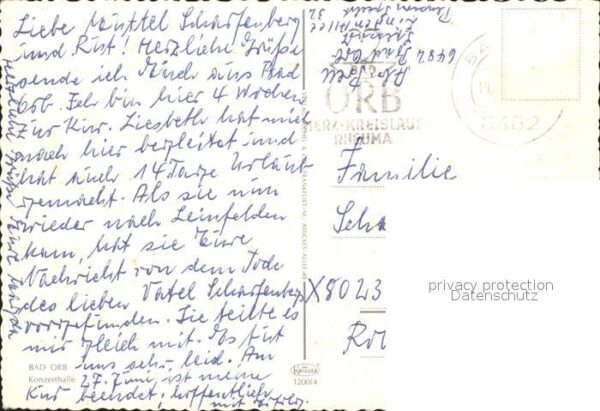 Liebe Muttel Scharfenberg
und Rüst! Herzliche Grüße
sende ich Euch aus Bad
Orb. Ich bin hier 4 Wochen
zur Kur. Liesbeth hat mich
nach hier begleitet und
hat auch 14 Tage Urlaub
gemacht. Als sie nun
wieder nach Leinfelden
kam, hat sie Eure
Nachricht von dem Tode
des lieben Vatel Scharfenberg
vorgefunden. Sie teilte es
mir gleich mit. Es tut
uns sehr leid. Am
27. Juni ist meine
Kur beendet, hoffentlich
mit Erfolg.
BAD ORB
Konzerthalle
6482 Bad Orb
BAD
ORB
HERZ-KREISLAUF
RHEUMA
6482
Familie
Scha
X8023
privacy protection
Datenschutz
1200/4